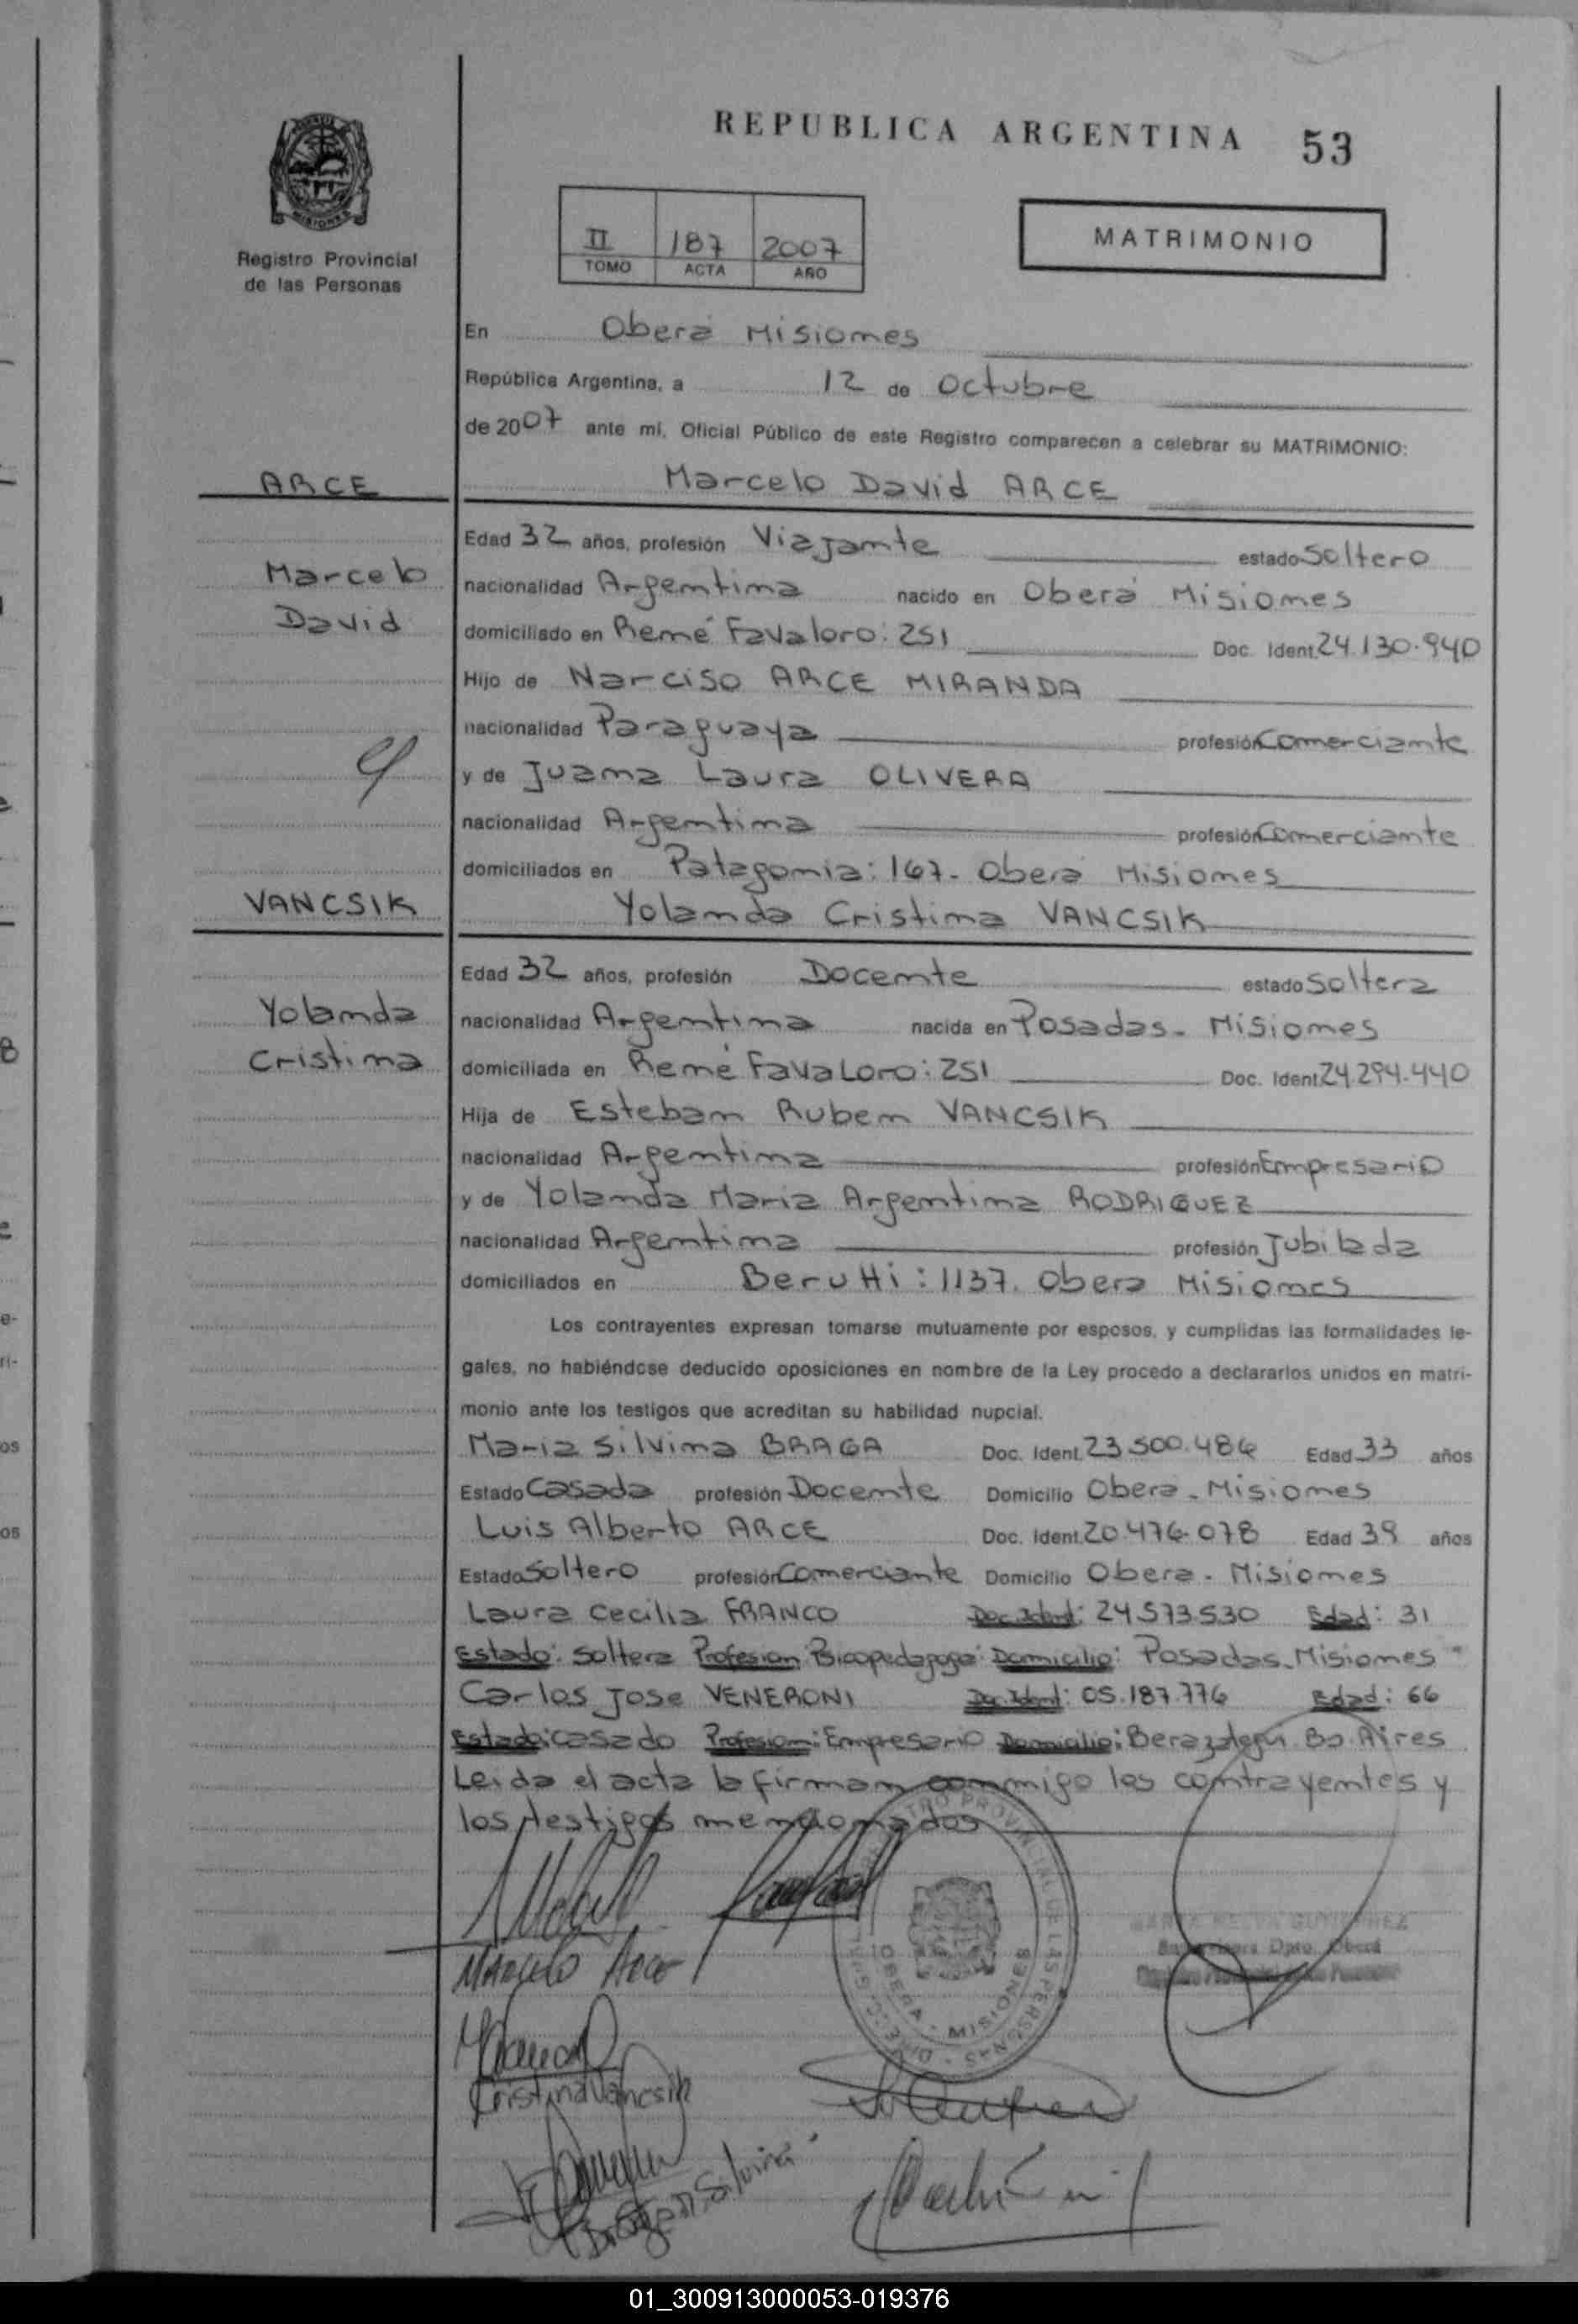 REPUBLICA ARGENTINA 53
MISIONES
Registro Provincial
de las Personas
II 187 2007
TOMO ACTA AÑO
MATRIMONIO
En Oberá Misiones
República Argentina, a 12 de Octubre
de 2007 ante mí, Oficial Público de este Registro comparecen a celebrar su MATRIMONIO:
ARCE
Marcelo David ARCE
Edad 32 años, profesión Viajante estado Soltero
Marcelo
David
nacionalidad Argentina nacido en Oberá Misiones
domiciliado en René Favaloro: 251 Doc. Ident. 24.130.940
Hijo de Narciso ARCE MIRANDA
nacionalidad Paraguaya profesión Comerciante
y de Juana Laura OLIVERA
nacionalidad Argentina profesión Comerciante
domiciliados en Patagonia: 167. Oberá Misiones
VANCSIK
Yolanda Cristina VANCSIK
Edad 32 años, profesión Docente estado Soltera
Yolanda
Cristina
nacionalidad Argentina nacida en Posadas - Misiones
domiciliada en René FavaLoro: 251 Doc. Ident. 24.294.440
Hija de Esteban Ruben VANCSIK
nacionalidad Argentina profesión Empresario
y de Yolanda Maria Argentina RODRIGUEZ
nacionalidad Argentina profesión Jubilada
domiciliados en Berutti: 1137. Obera Misiones
Los contrayentes expresan tomarse mutuamente por esposos, y cumplidas las formalidades le-
gales, no habiéndose deducido oposiciones en nombre de la Ley procedo a declararlos unidos en matri-
monio ante los testigos que acreditan su habilidad nupcial.
Maria Silvina BRAGA Doc. Ident. 23.500.486 Edad 33 años
Estado Casada profesión Docente Domicilio Obera - Misiones
Luis Alberto ARCE Doc. Ident. 20.476.078 Edad 39 años
Estado Soltero profesión Comerciante Domicilio Obera - Misiones
Laura Cecilia FRANCO Doc. Ident: 24.573.530 Edad: 31
Estado: Soltera Profesion: Psicopedagoga Domicilio: Posadas - Misiones
Carlos Jose VENERONI Doc. Ident: 05.187.776 Edad: 66
Estado: casado Profesion: Empresario Domicilio: Berazategui Bs. Aires
Leida el acta la firman conmigo los contrayentes y
los testigos mencionados
MARCELO ARCE
OBERA - MISIONES
Cristina Vancsik
Braga Silvina
01_300913000053-019376